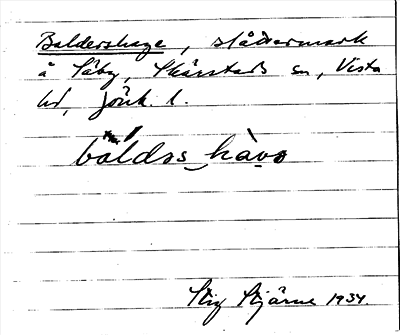 Baldershage, slåttermark
å Säby, Skärstads sn, Vista
hd, Jönk. l.
báldəs_hàvə
Stig Stjärne 1934.